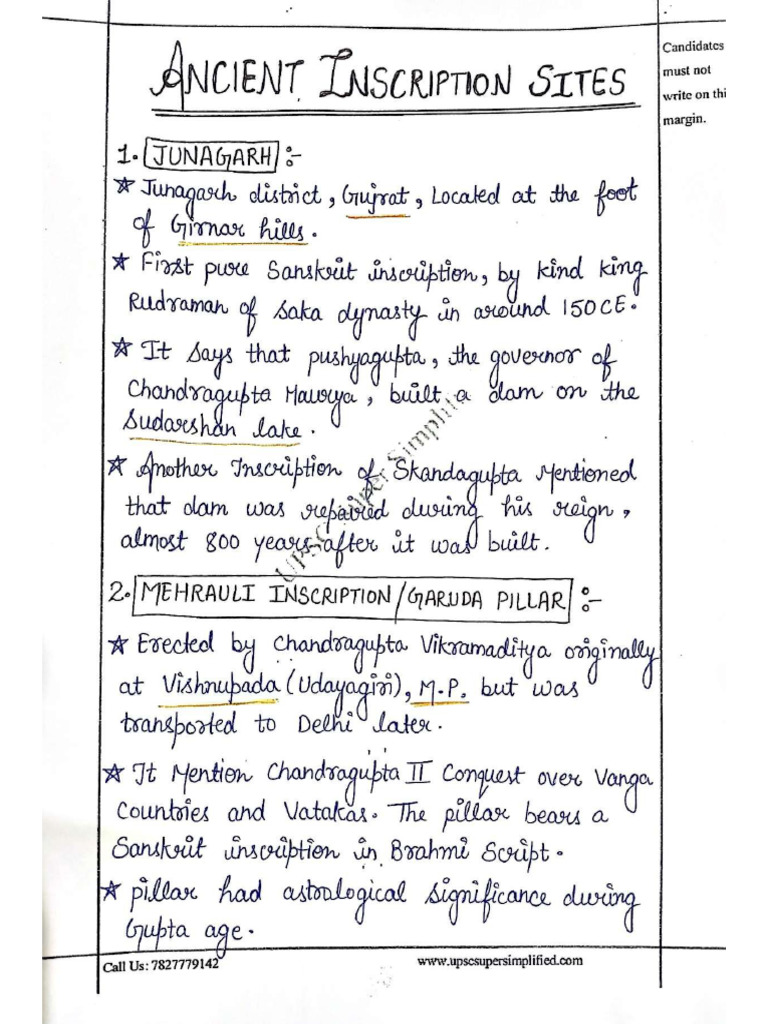 ANCIENT INSCRIPTION SITES
Candidates
must not
write on thi
margin.
1. JUNAGARH :-
☆ Junagarh district, Gujrat, Located at the foot
of Girnar hills.
☆ First pure Sanskrit inscription, by kind king
Rudraman of Saka dynasty in around 150CE.
☆ It says that pushyagupta, the governor of
Chandragupta Maurya, built a dam on the
Sudarshan lake.
☆ Another Inscription of Skandagupta Mentioned
that dam was repaired during his reign,
almost 800 years after it was built.
UPSC Super Simplifi
2. MEHRAULI INSCRIPTION/GARUDA PILLAR :-
☆ Erected by Chandragupta Vikramaditya originally
at Vishnupada (Udayagiri), M.P. but was
transported to Delhi later.
☆ It Mention Chandragupta II Conquest over Vanga
Countries and Vatakas. The pillar bears a
Sanskrit inscription in Brahmi Script.
☆ pillar had astrological significance during
Gupta age.
Call Us: 7827779142
www.upscsupersimplified.com